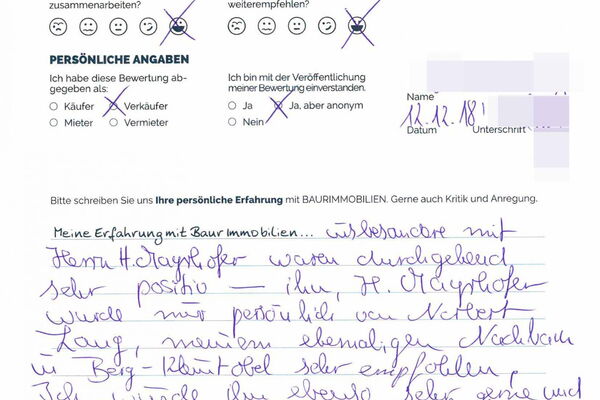 zusammenarbeiten?
weiterempfehlen?
PERSÖNLICHE ANGABEN
Ich habe diese Bewertung ab-
gegeben als:
Käufer Verkäufer
Mieter Vermieter
Ich bin mit der Veröffentlichung
meiner Bewertung einverstanden.
Ja Ja, aber anonym
Nein
Name
12.12.18
Datum Unterschrift
Bitte schreiben Sie uns Ihre persönliche Erfahrung mit BAURIMMOBILIEN. Gerne auch Kritik und Anregung.
Meine Erfahrung mit Baur Immobilien... insbesondere mit
Herrn H. Mayrhofer waren durchgehend
sehr positiv — ihn, H. Mayrhofer
wurde mir persönlich von Norbert
Lang, meinem ehemaligen Nachbarn
in Berg - sehr empfohlen.
Ich würde ihn ebenso sehr gerne und